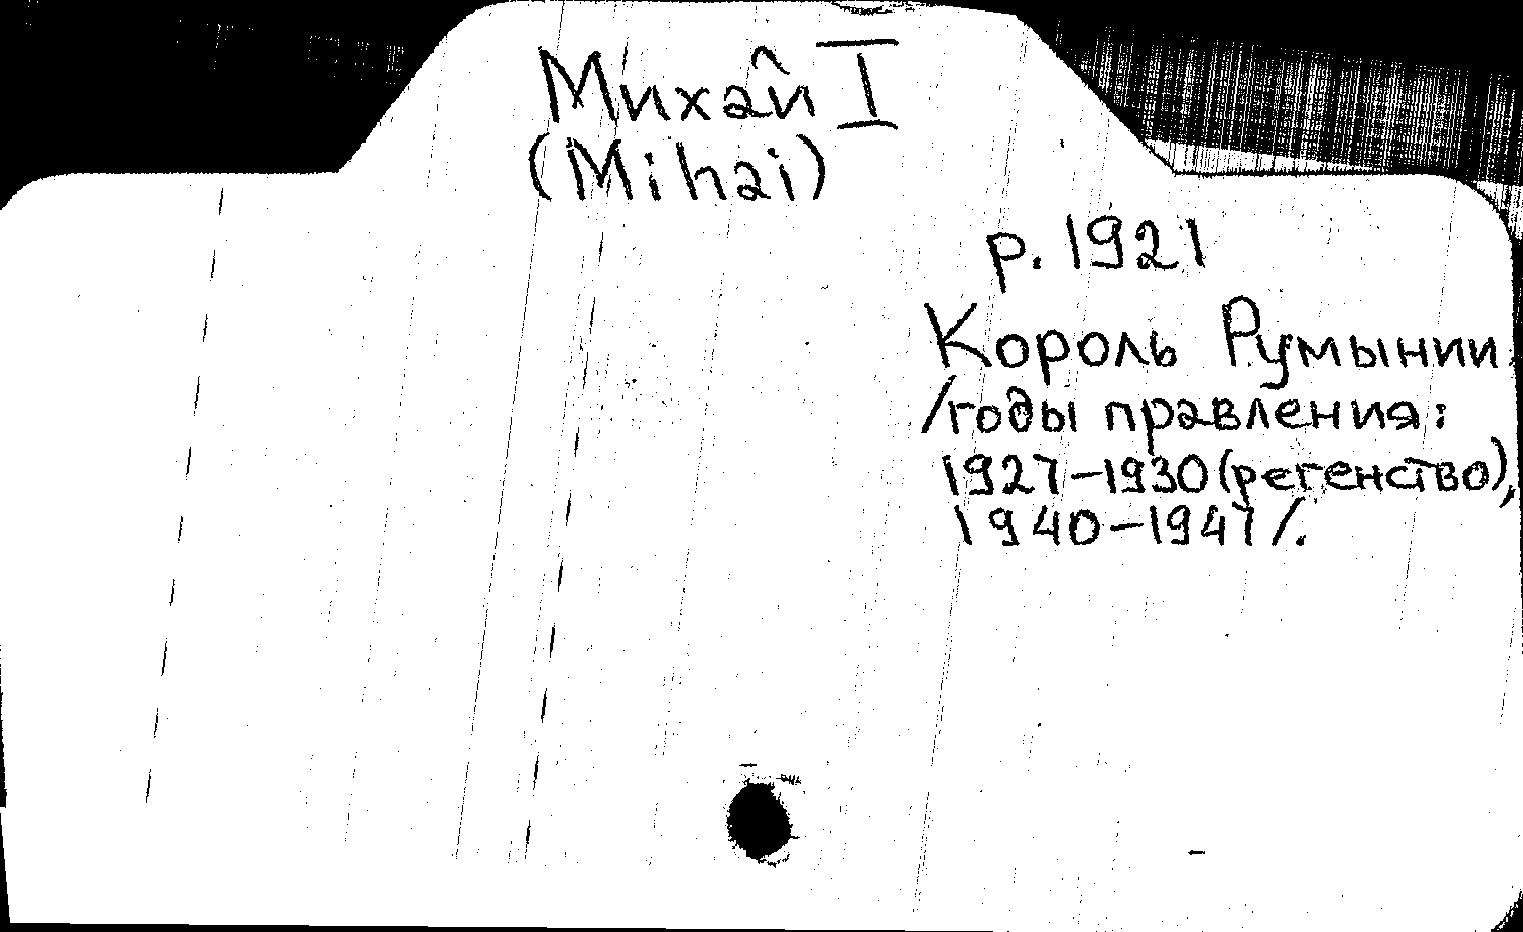 Михай I
(Mihai)
р. 1921
Король Румынии
/годы правления:
1927-1930 (регенство),
1940-1947/.